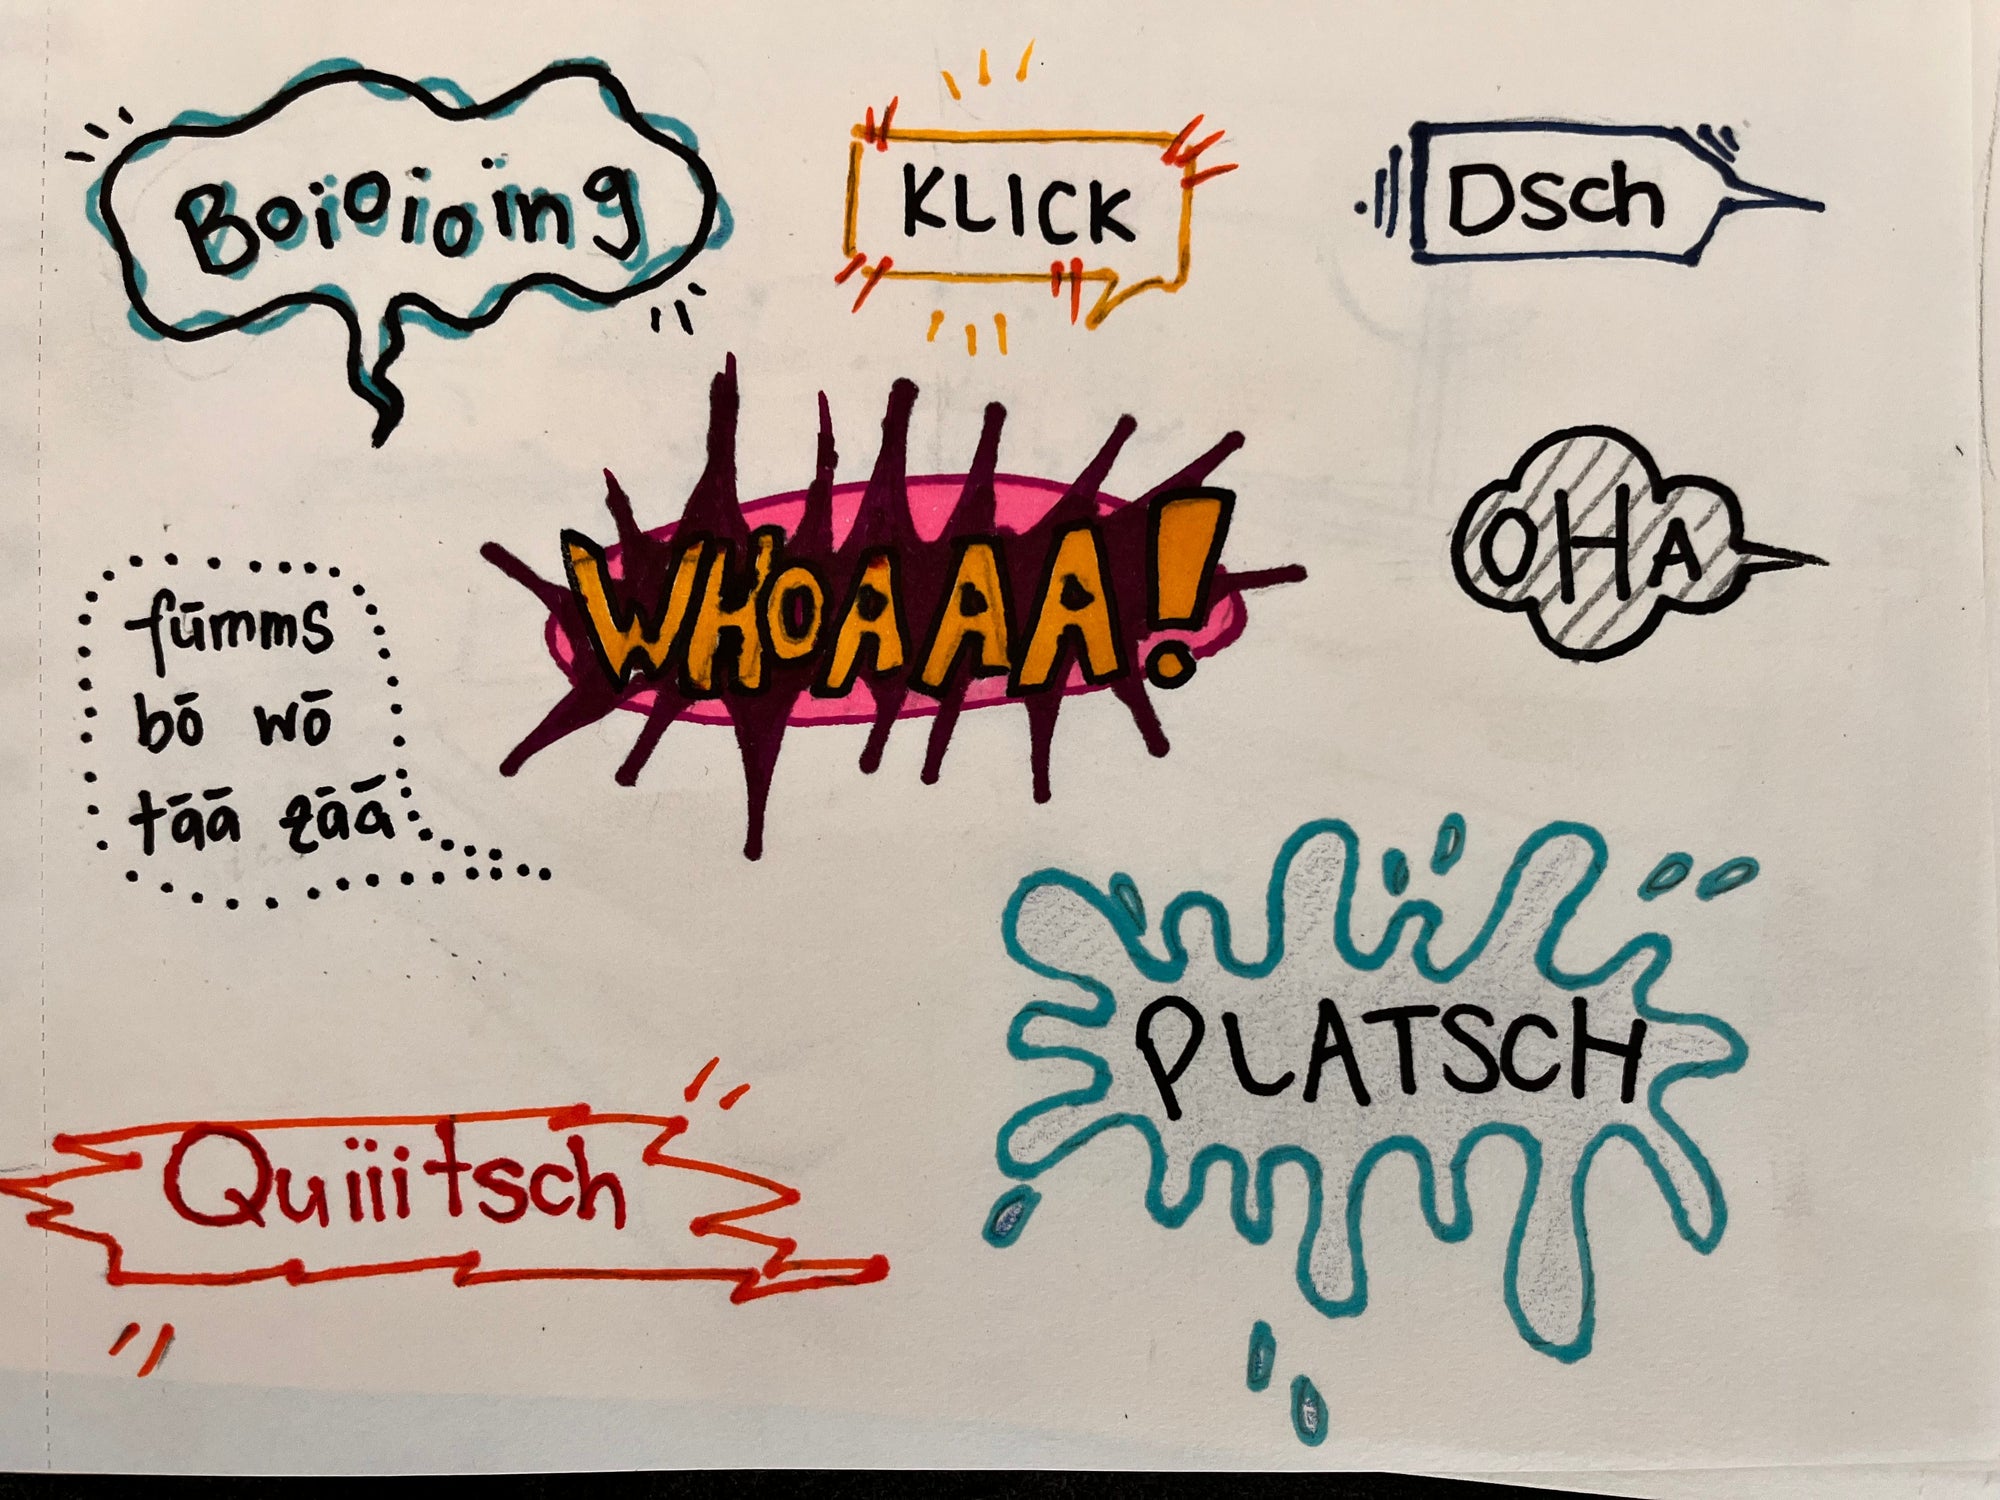 Boioioing
KLICK
Dsch
WHOAAA!
OHA
fūmms
bō wō
tāā zāā
PLATSCH
Quiiitsch